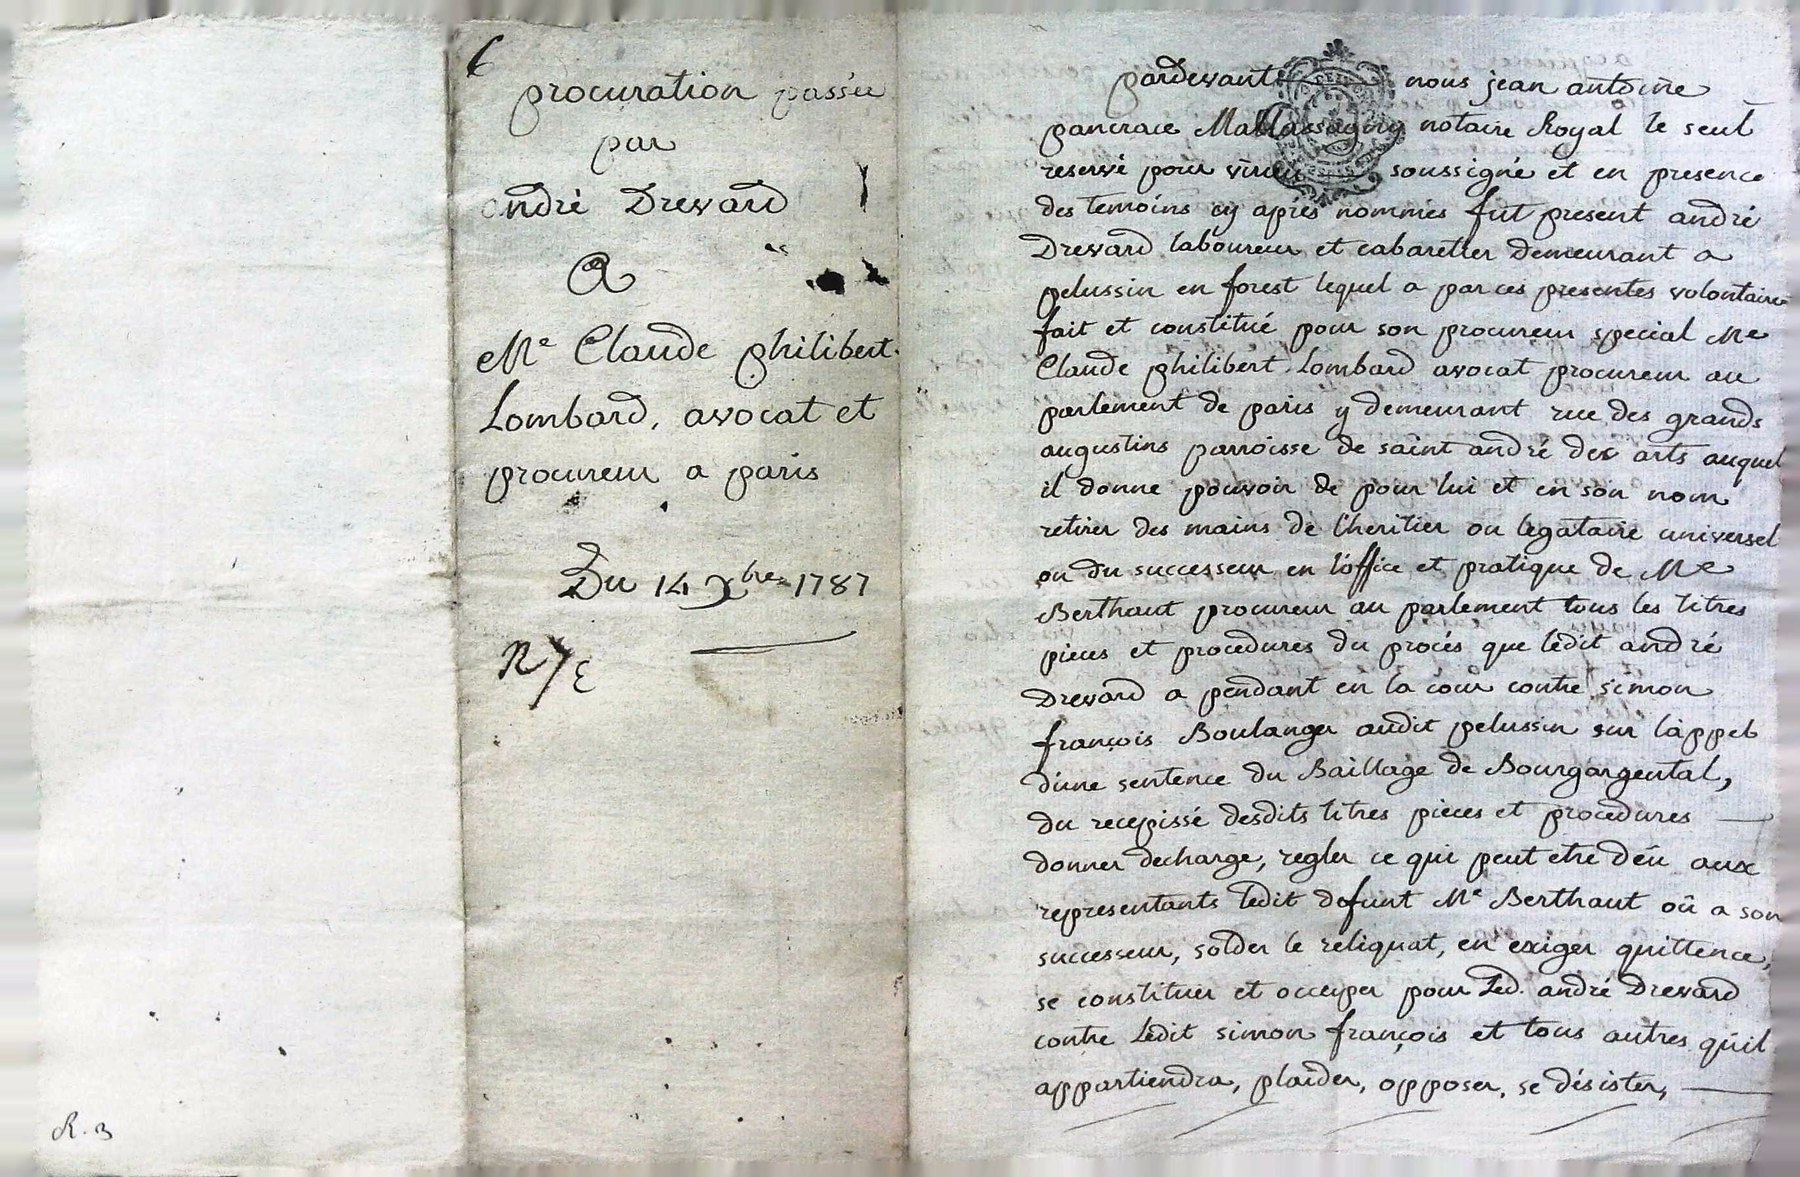 6
procuration passée
par
andré Drevard
A
Me Claude philibert
Lombard, avocat et
procureur a paris
Du 14 Xbre 1787
R. 3
pardevant nous jean antoine
pancrace notaire Royal le seul
reservé pour virieu soussigné et en presence
des temoins cy aprés nommés fut present andré
Drevard laboureur et cabaretier demeurant a
pelussin en forest lequel a par ces presentes volontaire
fait et constitué pour son procureur special Me
Claude philibert Lombard avocat procureur au
parlement de paris y demeurant rue des grands
augustins parroisse de saint andré des arts auquel
il donne pouvoir de pour lui et en son nom
retirer des mains de l'heritier ou legataire universel
ou du successeur en l'office et pratique de Me
Berthaut procureur au parlement tous les titres
pieces et procedures du procés que ledit andré
Drevard a pendant en la cour contre simon
françois Boulanger audit pelussin sur l'appel
d'une sentence du Baillage de Bourgargental,
du recepissé desdits titres pieces et procedures
donner decharge, regler ce qui peut etre dêu aux
representants ledit defunt Me Berthaut oû a son
successeur, solder le reliquat, en exiger quittence,
se constituer et occuper pour Led. andré Drevard
contre Ledit simon françois et tous autres qu'il
appartiendra, plaider, opposer, se désister,